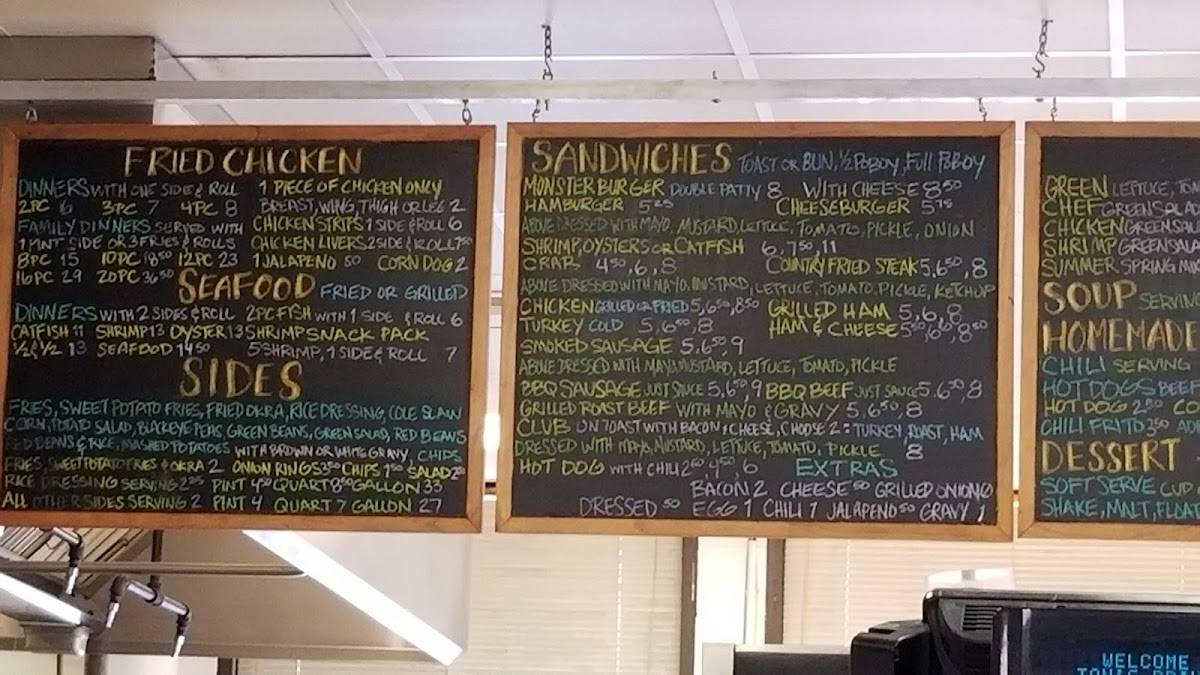 FRIED CHICKEN
DINNERS WITH ONE SIDE & ROLL 1 PIECE OF CHICKEN ONLY
2PC 6 3PC 7 4PC 8 BREAST, WING, THIGH OR LEG 2
FAMILY DINNERS SERVED WITH CHICKEN STRIPS 1 SIDE & ROLL 6
1 PINT SIDE OR 3 FRIES & ROLLS CHICKEN LIVERS 2 SIDE & ROLL 7⁵⁰
8PC 15 10PC 18⁵⁰ 12PC 23 1 JALAPENO 50 CORN DOG 2
16PC 29 20PC 36⁵⁰
SEAFOOD FRIED OR GRILLED
DINNERS WITH 2 SIDES & ROLL 2PC FISH WITH 1 SIDE & ROLL 6
CATFISH 11 SHRIMP 13 OYSTER 13 SHRIMP SNACK PACK
½ & ½ 13 SEAFOOD 14⁵⁰ 5 SHRIMP, 1 SIDE & ROLL 7
SIDES
FRIES, SWEET POTATO FRIES, FRIED OKRA, RICE DRESSING, COLE SLAW
CORN, POTATO SALAD, BLACKEYE PEAS, GREEN BEANS, GREEN SALAD, RED BEANS
RED BEANS & RICE, MASHED POTATOES WITH BROWN OR WHITE GRAVY, CHIPS
FRIES, SWEET POTATO FRIES & OKRA 2 ONION RINGS 3⁵⁰ CHIPS 1⁵⁰ SALAD
RICE DRESSING SERVING 2²⁵ PINT 4⁵⁰ QUART 8⁵⁰ GALLON 33
ALL OTHER SIDES SERVING 2 PINT 4 QUART 7 GALLON 27
SANDWICHES TOAST OR BUN, ½ POBOY, FULL POBOY
MONSTER BURGER DOUBLE PATTY 8 WITH CHEESE 8⁵⁰
HAMBURGER 5²⁵ CHEESEBURGER 5⁷⁵
ABOVE DRESSED WITH MAYO, MUSTARD, LETTUCE, TOMATO, PICKLE, ONION
SHRIMP, OYSTERS OR CATFISH 6, 7⁵⁰, 11
CRAB 4⁵⁰, 6, 8 COUNTRY FRIED STEAK 5, 6⁵⁰, 8
ABOVE DRESSED WITH MAYO, MUSTARD, LETTUCE, TOMATO, PICKLE, KETCHUP
CHICKEN GRILLED OR FRIED 5, 6⁵⁰, 8⁵⁰ GRILLED HAM 5, 6, 8
TURKEY COLD 5, 6⁵⁰, 8 HAM & CHEESE 5⁵⁰, 6⁵⁰, 8⁵⁰
SMOKED SAUSAGE 5, 6⁵⁰, 9
ABOVE DRESSED WITH MAYO, MUSTARD, LETTUCE, TOMATO, PICKLE
BBQ SAUSAGE JUST SAUCE 5, 6⁵⁰, 9 BBQ BEEF JUST SAUCE 5, 6⁵⁰, 8
GRILLED ROAST BEEF WITH MAYO & GRAVY 5, 6⁵⁰, 8
CLUB ON TOAST WITH BACON & CHEESE, CHOOSE 2: TURKEY, ROAST, HAM
DRESSED WITH MAYO, MUSTARD, LETTUCE, TOMATO, PICKLE 8
HOT DOG WITH CHILI 2⁵⁰ 4⁵⁰, 6 EXTRAS
BACON 2 CHEESE ⁵⁰ GRILLED ONION
DRESSED ⁵⁰ EGG 1 CHILI 1 JALAPENO ⁵⁰ GRAVY 1
GREEN LETTUCE, TOM
CHEF GREEN SALAD
CHICKEN GREEN SAL
SHRIMP GREEN SALA
SUMMER SPRING MIX
SOUP SERVIN
HOMEMADE
CHILI SERVING
HOT DOGS BEEF
HOT DOG 2⁵⁰ CO
CHILI FRITO 3⁵⁰ ADD
DESSERT
SOFT SERVE CUP
SHAKE, MALT, FLOAT
WELCOME